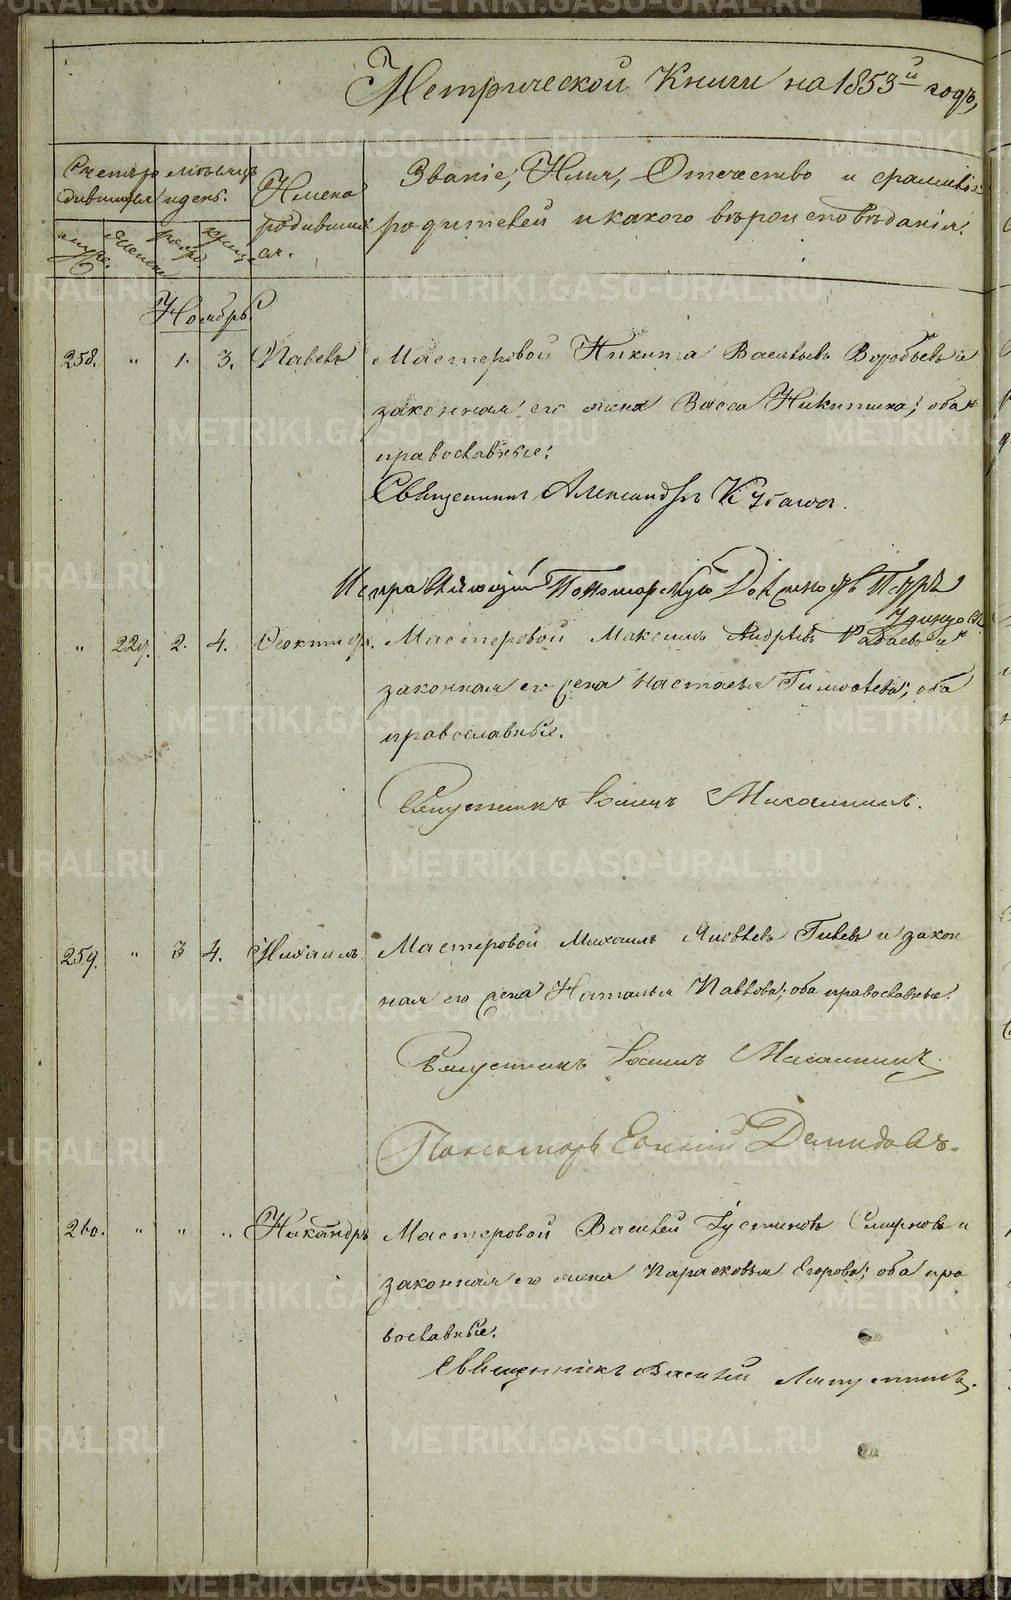 Метрической Книги на 1853й годъ,
Счетъ ро
дившихся
Мѣсяцъ
и день.
Имена
родивших
ся.
Званіе, Имя, Отечество и фамилія
родителей и какого вѣроисповѣданія.
Ноябрь
258. " 1. 3. Павелъ Мастеровой Никита Васильевъ Воробьевъ и
законная его жена Васса Никитина; оба
православные;
Священникъ Александръ
Исправляющій Пономарскую Должность Петръ
" 229. 2. 4. Мастеровой Максимъ Андреевъ и
законная его жена Настасья Тимофеева; оба
православные.
Священникъ Іоаннъ
259. " 3 4. Михаилъ Мастеровой Михаилъ Яковлевъ Гилевъ и закон
ная его жена Наталья Павлова; оба православные.
Священникъ Іоаннъ
Пономарь Евгеній Демидовъ.
260. " " " Никандръ Мастеровой Василей Іустиновъ Смирновъ и
законная его жена Парасковья Егорова; оба пра
вославные.
Священникъ Василій
METRIKI.GASO-URAL.RU